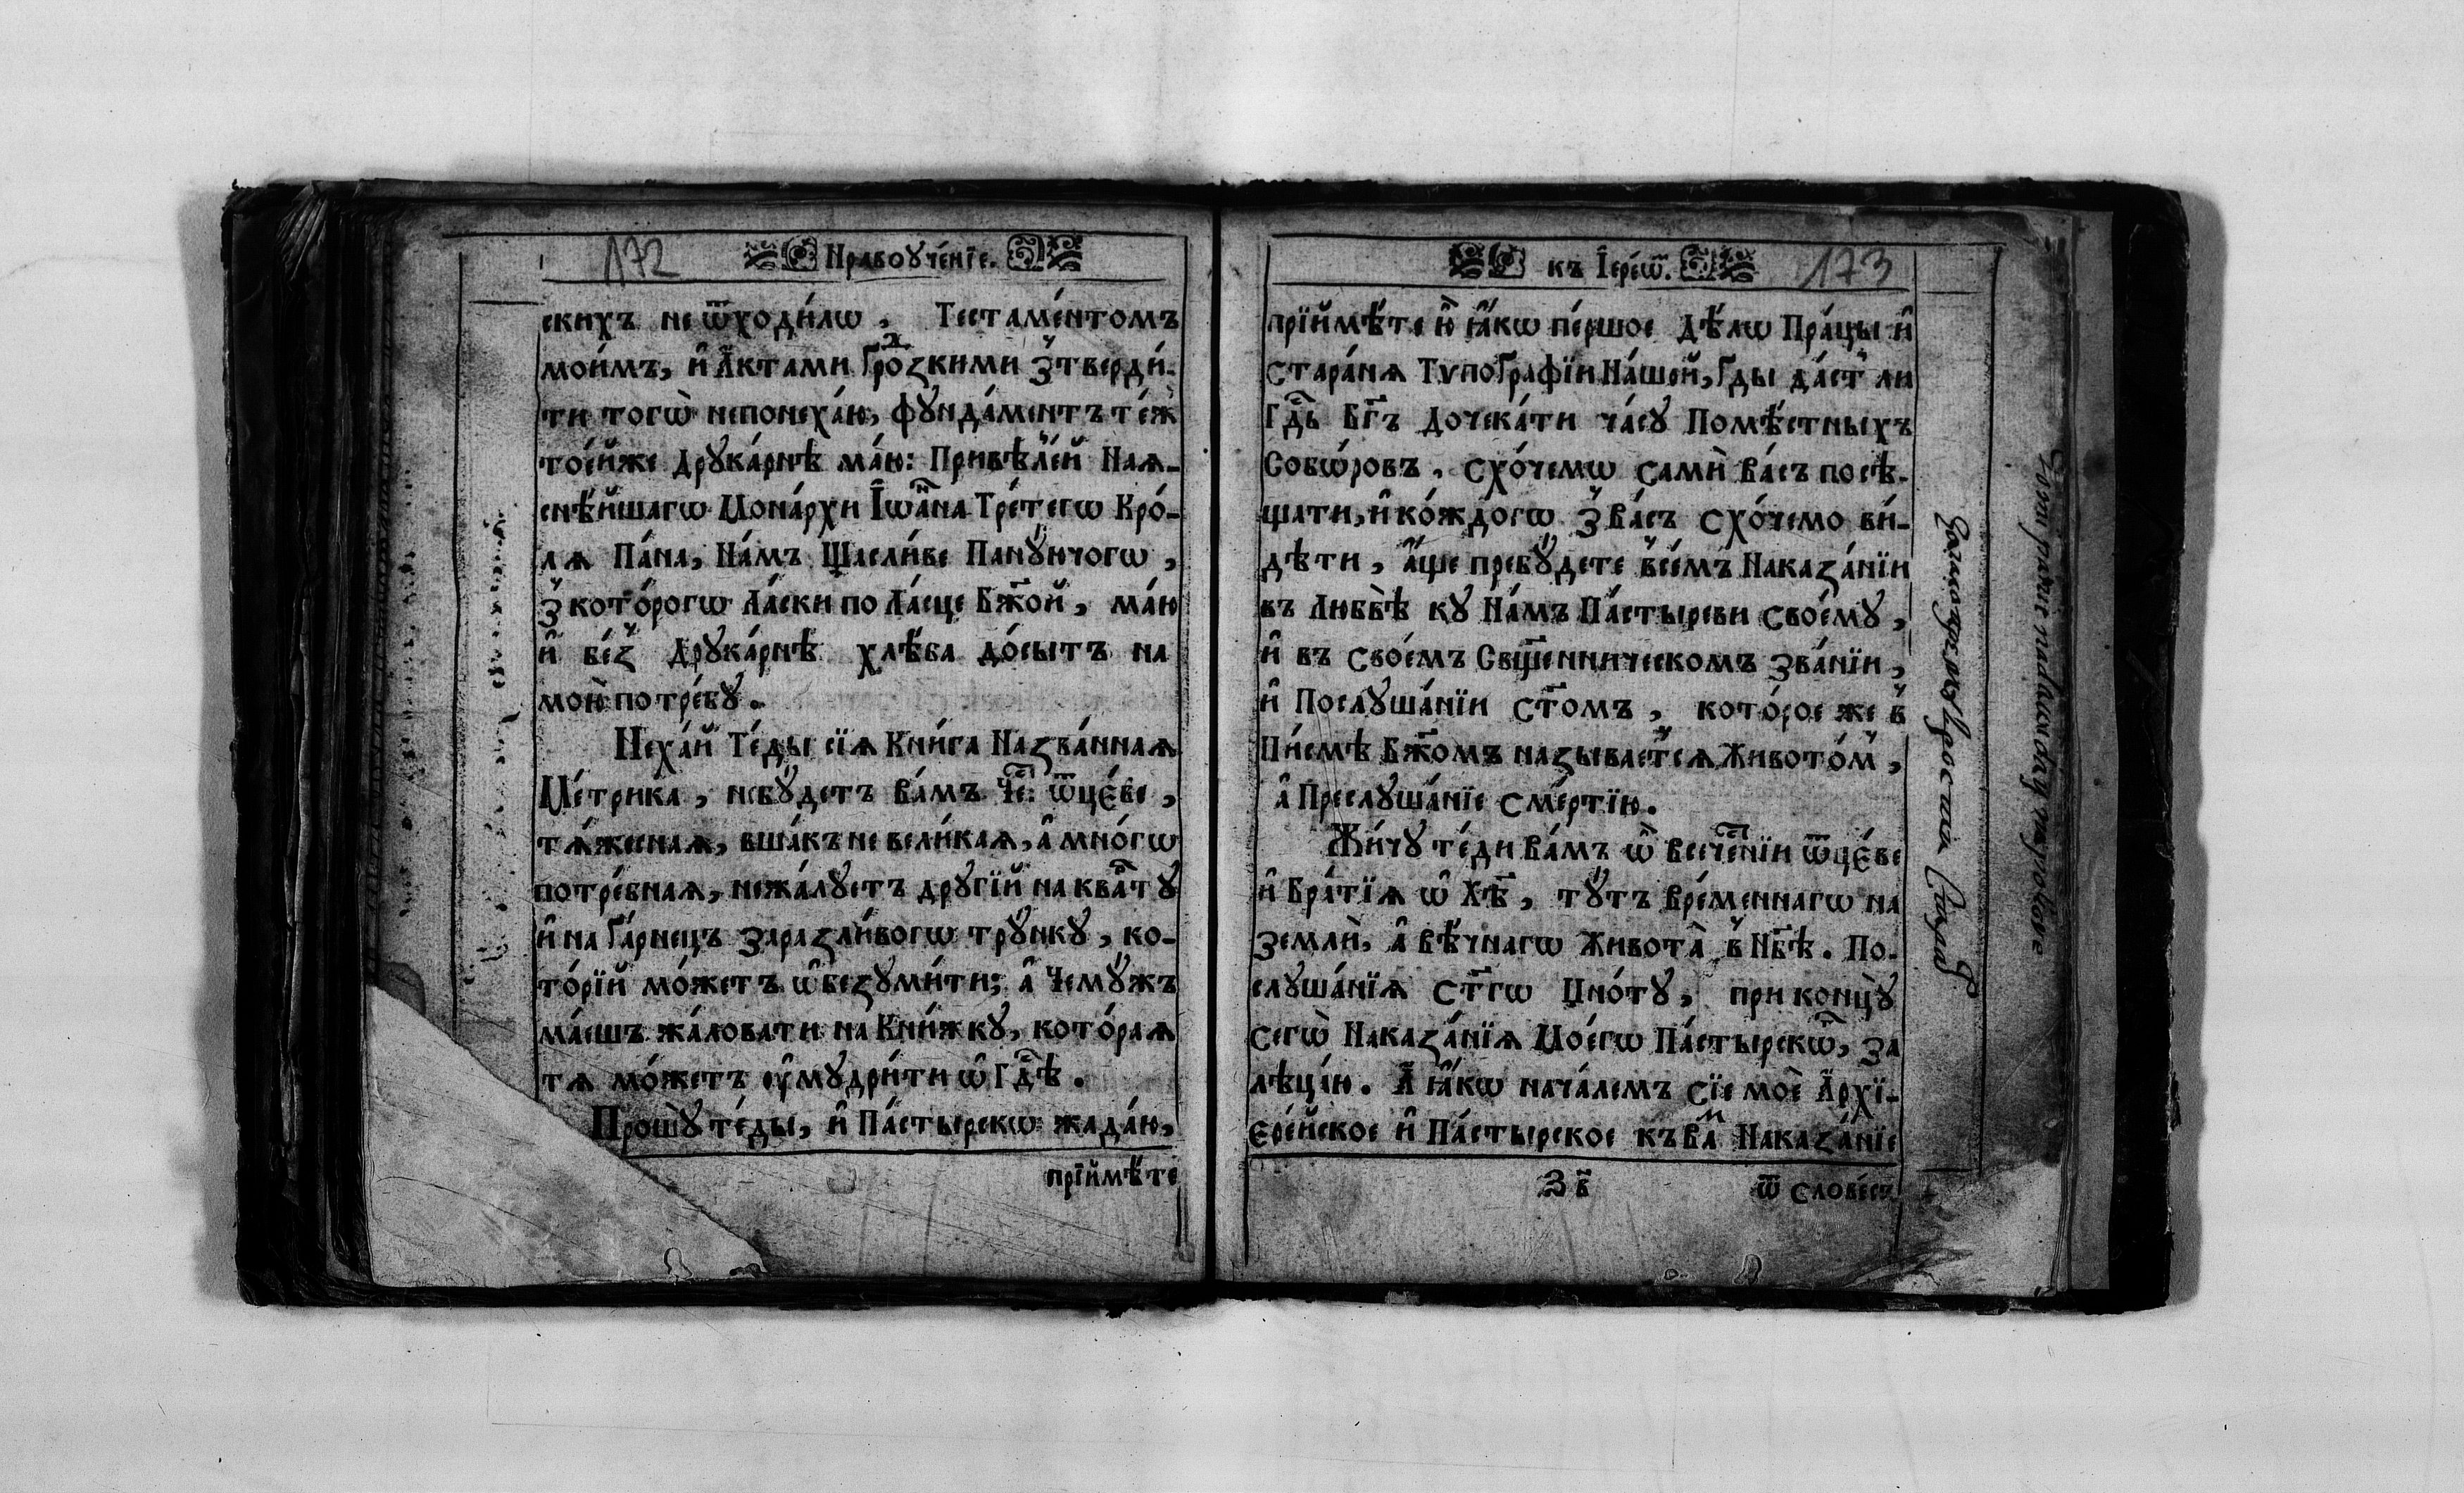 172
Нравоꙋче́нїе.
скихъ не ѿходи́лѡ, Тестаме́нтомъ
мои́мъ, и҆ А҆́ктами Ґро́ⷣзкими З̾тверди́-
ти тогѡ̀ непонеха́ю, фꙋнда́ментъ те́ж̾
тое́йже Дрꙋка́рнѣ ма́ю: Привѣле́й Ная-
снѣ́йшагѡ Мона́рхи І҆ѡа́нна Тре́тегѡ Кро́-
ля Па́на, На́мъ Щасли́ве Панꙋ́ючогѡ,
З̾ кото́рогѡ Ла́ски по Ла́сце Бж҃ой, ма́ю
и҆ бе́з̾ Дрꙋка́рнѣ хлѣ́ба до́сытъ на
мою̀ потре́бꙋ.
Неха́й Те́ды сїя Кни́га Назва́нная
Ме́трика, небꙋ́детъ Ва́мъ Че҃: ѿцє́ве,
тя́жесная, вша́къ не вели́кая, а҆ мно́гѡ
потре́бная, нежа́лꙋетъ дрꙋгі́й на ква́тꙋ
и҆ на Ґа́рнецъ Заразли́вогѡ трꙋ́нкꙋ, ко-
то́рїй мо́жетъ ѡ҆безꙋми́ти; а҆ Чемꙋ́жъ
ма́ешъ жа́ловати на Кни́жкꙋ, кото́рая
тя мо́жетъ ᲂу҆мꙋдри́ти ѡ҆ Гдⷭ҇ѣ.
Прошꙋ̀ те́ды, и҆ Па́стырскѡ жада́ю,
прїймѣ́те
къ І҆ере́ѡⷨ.
173
прїймѣ́те и҆̀ ꙗ҆́кѡ пе́ршое Дѣ́лѡ Пра́цы и҆
Стара́ня Тѵпоґра́фїи На́шой, Ґды да́ст̾ ли
Гдⷭ҇ь Бг҃ъ Дочека́ти ча́сꙋ Помѣ́стныхъ
Собѡ́ровъ, Схо́чемѡ Самѝ Ва́съ посѣ-
щати, и҆ ко́ждогѡ З̾ Ва́съ Схо́чемо ви́-
дѣти, а҆́ще пребꙋ́дете в̾се́мъ Наказа́нїи
въ Любвѣ̀ кꙋ На́мъ Па́стыреви Своє́мꙋ,
и҆ въ Своє́мъ Свщ҃енническомъ Зва́нїи,
и҆ Послꙋша́нїи Ст҃омъ, кото́рое же в̾
Пи́смѣ Бж҃омъ называет̾ся Живото́м̾,
а҆ Преслꙋша́нїе Сме́ртїю.
Жи́чꙋ те́ди Ва́мъ ѡ҆̀ Всече́нїи ѿцє́ве
и҆ Бра́тїя ѡ҆ Хѣ҃, тꙋ́тъ Вре́меннагѡ на
Землѝ, а҆ Вѣ́чнагѡ Живота̀ в̾ Нб҃ѣ. По-
слꙋша́нїя Ст҃гѡ Цно́тꙋ, при концꙋ̀
Сегѡ̀ Наказа́нїя Моє́гѡ Па́стырскѡⷢ, за
лѣца́ю. А҆ ꙗ҆́кѡ нача́лемъ Сїе моѐ А҆рхї-
єре́йское и҆ Па́стырское къ Ва́ⷨ Наказа́нїе
З в҃
ѿ Слове́съ